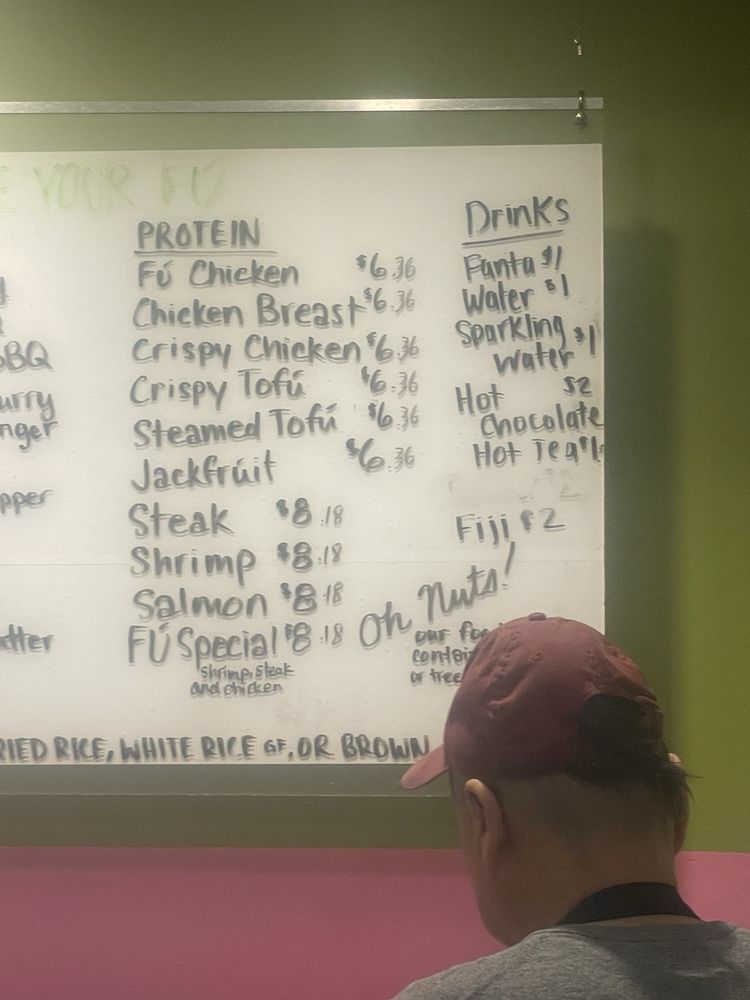 YOUR FÚ
PROTEIN
Fú Chicken $6.36
Chicken Breast $6.36
Crispy Chicken $6.36
Crispy Tofú $6.36
Steamed Tofú $6.36
Jackfrúit $6.36
Steak $8.18
Shrimp $8.18
Salmon $8.18
FÚ Special $8.18
shrimp, steak
and chicken
Drinks
Fanta $1
Water $1
Sparkling $1
Water
Hot $2
Chocolate
Hot Tea $1
Fiji $2
Oh Nuts!
our
or tree
BQ
urry
nger
pper
RIED RICE, WHITE RICE GF, OR BROWN